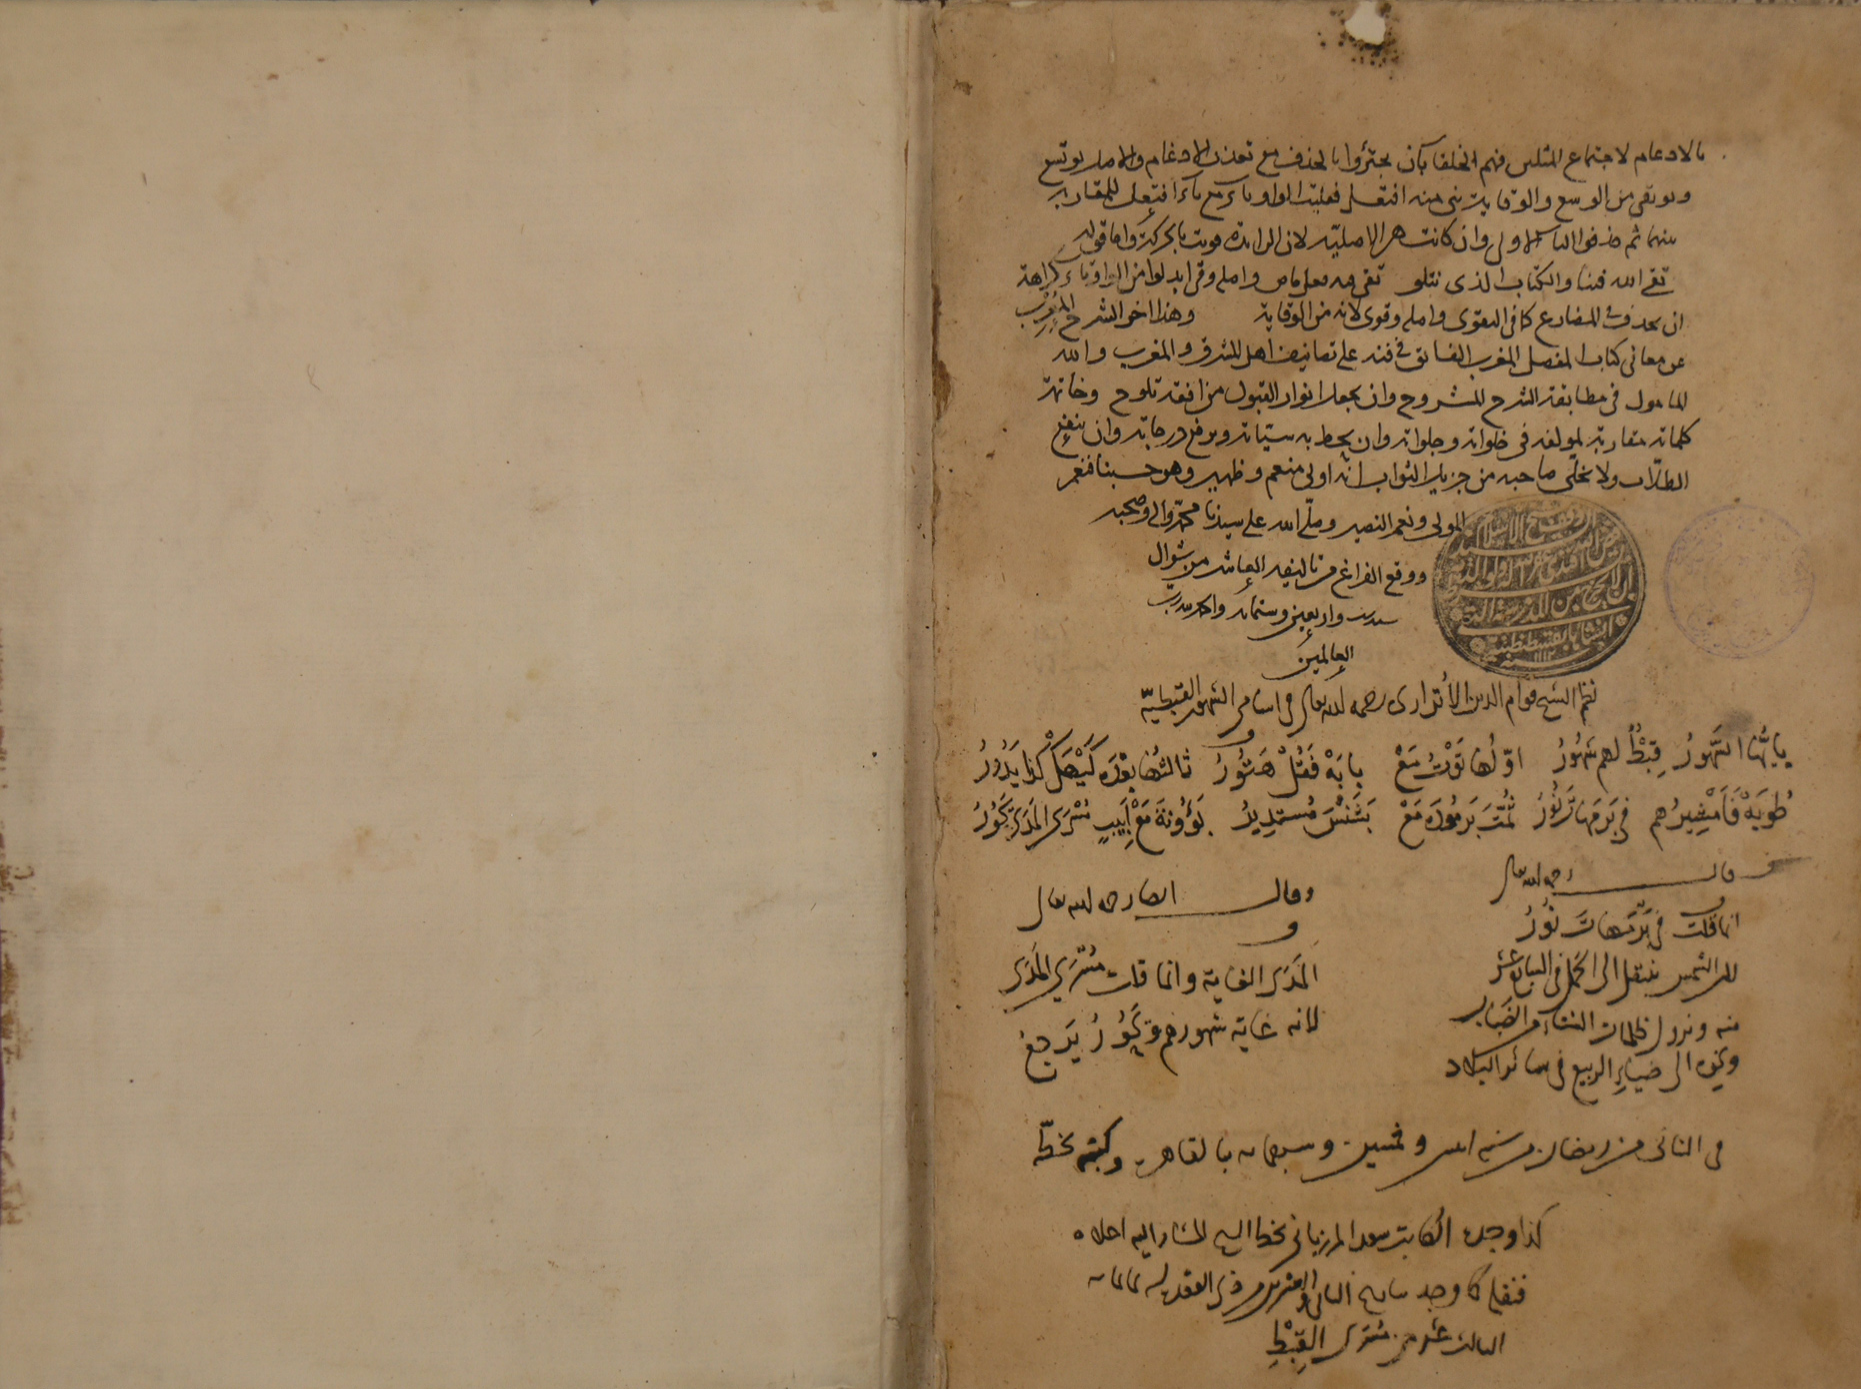 بالادغام لاجتماع المثلين فهم الخلقا بان يجتزؤا بالحذف مع تعذر الادغام والاصل يوتسع
ويوتقي من الوسع والوقاية بنى منه افتعل فقلبت الواو ياء مع ياء افتعل للمقاربة
بينهما ثم حذفوا التاء الاولى وان كانت هي الاصلية لان الزائدة قويت بالحركة واما قوله
تق الله فينا والكتاب الذي نتلو تقى فيه فعل ماض واصله وقى ابدلوا من الواو تاء كراهة
ان يحذف في المضارع كما في التقوى واصله وقوى لانه من الوقاية وهذا اخر الشرح المعرب
عن معاني كتاب المفصل المغرب الفائق في فنه على تصانيف اهل المشرق والمغرب والله
المامول في مطابقة الشرح للمشروح وان يجعل انوار القبول من افقه تلوح وخاتمة
كلماته مقاربة لمولفه في خلواته وجلواته وان يحط به سيئاته ويرفع درجاته وان ينفع
الطلاب ولا يخلي صاحبه من جزيل الثواب انه اولى منعم وظهير وهو حسبنا فنعم
المولى ونعم النصير وصلى الله على سيدنا محمد واله وصحبه
ووقع الفراغ من تاليفه العاشر من شوال
سنة واربعين وستمائة والحمد لله رب
العالمين
نظم الشيخ قوام الدين الأتراري رحمه الله تعالى في اسامي الشهور القبطية
يا ايها الشهور قِبْطٌ لهم شهورُ اوّلها تَوْتُ مَعْ بابَهْ فَقُلْ هَتُورُ ثالثها بَعْدَه كَيْهَكْ كذا يَدُورُ
طُوبَهْ فَاَمْشِيرُهم في بَرْمَهاتَ نُورُ ثُمَّتَ بَرمُودَه مَعْ بَشَنْسَ مُستديرُ بَؤُونَةَ مَعْ اَبِيبٍ مُسْرَى المَدَى يَحُورُ
وقال رحمه الله تعالى
انما قلت في بَرْمَهاتَ نُورُ
لان الشمس ينتقل الى الحمل في السابع عشر
منه ويزول ظلمات الشتاء من الضباب
وغيره الى ضياء الربيع في سائر البلاد
وقال ايضا رحمه الله تعالى
المَدَى الغاية وانما قلت مُسْرَى المَدَى
لانه غاية شهورهم ويَحُورُ يَرجعُ
في الثاني من رمضان من سنة اثنين وخمسين وسبعمائة بالقاهرة وكتبه بخطه
كذا وجده الكاتب سعد المرزباني بخط الشيخ المشار اليه اعلاه
فنقله كما وجد بتاريخ الثاني والعشرين من ذي القعدة
الثالث عشر من مسرى القِبْطِ